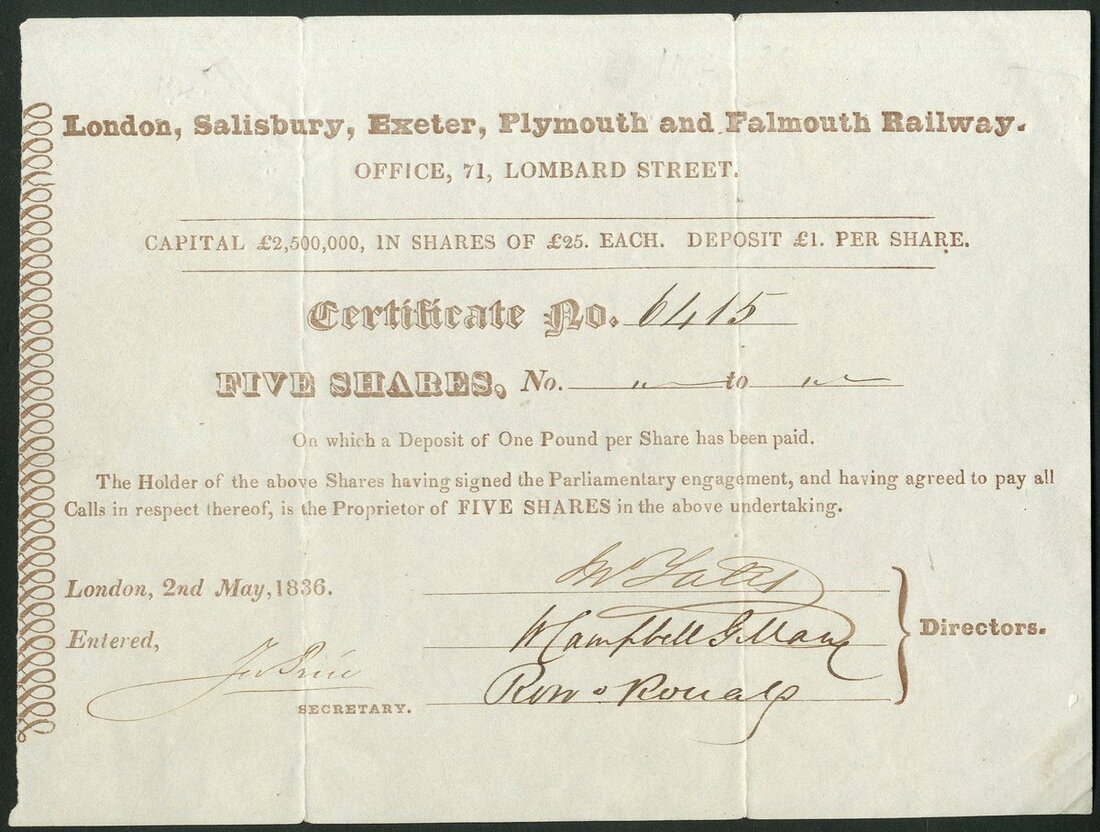 London, Salisbury, Exeter, Plymouth and Falmouth Railway.
OFFICE, 71, LOMBARD STREET.
CAPITAL £2,500,000, IN SHARES OF £25. EACH. DEPOSIT £1. PER SHARE.
Certificate No. 6415
FIVE SHARES, No. to
On which a Deposit of One Pound per Share has been paid.
The Holder of the above Shares having signed the Parliamentary engagement, and having agreed to pay all
Calls in respect thereof, is the Proprietor of FIVE SHARES in the above undertaking.
London, 2nd May, 1836.
Entered,
W Campbell Gillan
Directors.
SECRETARY.